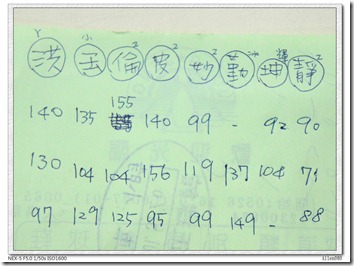 Y 小 2 2 2 冰 輝 2
洪 玉 倫 皮 妙 勤 坤 靜
155
140 135 140 99 - 92 90
130 104 104 156 119 137 104 71
97 129 125 95 99 149 - 88
NEX-5 F5.0 1/50s ISO1600